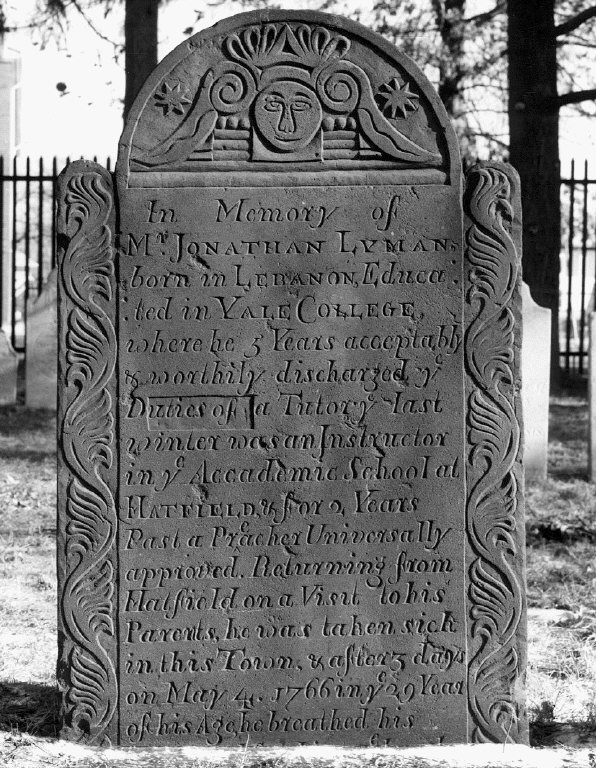 In Memory of
Mr. JONATHAN LYMAN
born in LEBANON, Educa
ted in YALE COLLEGE,
where he 5 Years acceptably
& worthily discharged ye
Duties of a Tutor ye last
winter was an Instructor
in ye Accademic School at
HATFIELD, & for 2 Years
Past a Preacher Universally
approved. Returning from
Hatfield on a Visit to his
Parents, he was taken sick
in this Town, & after 3 days
on May 4. 1766 in ye 29 Year
of his Age, he breathed his